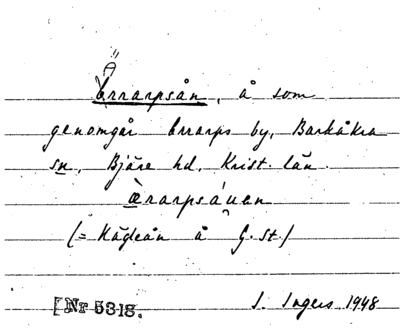 Ärrarpsån, å som
genomgår Errarps by, Barkåkra
sn, Bjäre hd, Krist. län.
ærarpsáuen
(= Kägleån å G. St.)
[Nr 5318. I. Ingers 1948